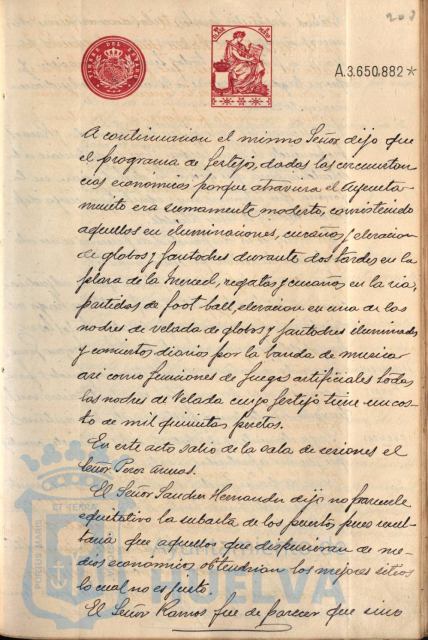 203
A.3.650.882*
A continuacion el mismo Señor dijo que
el programa de festejos, dadas las circunstan
cias económicas porque atraviesa el Ayunta-
miento era sumamente modesto, consistiendo
aquellos en iluminaciones, cucañas, elevacion
de globos y fantoches durante dos tardes en la
plaza de la Merced, regatas y cucañas en la ria,
partidos de foot ball, elevacion en una de las
noches de velada de globos y fantoches iluminados
y conciertos diarios por la banda de musica
asi como funciones de fuegos artificiales todas
las noches de Velada cuyo festejo tiene un cos-
to de mil quinientas pesetas.
En este acto salio de la sala de sesiones el
Señor Perez
El Señor Sanchez Hernandez dijo no parecerle
equitativo la subasta de los puestos, pues resul
taria que aquellos que dispusieran de me-
dios economicos obtendrian los mejores sitios
lo cual no es justo.
El Señor Ramos fue de parecer que sino
HUELVA